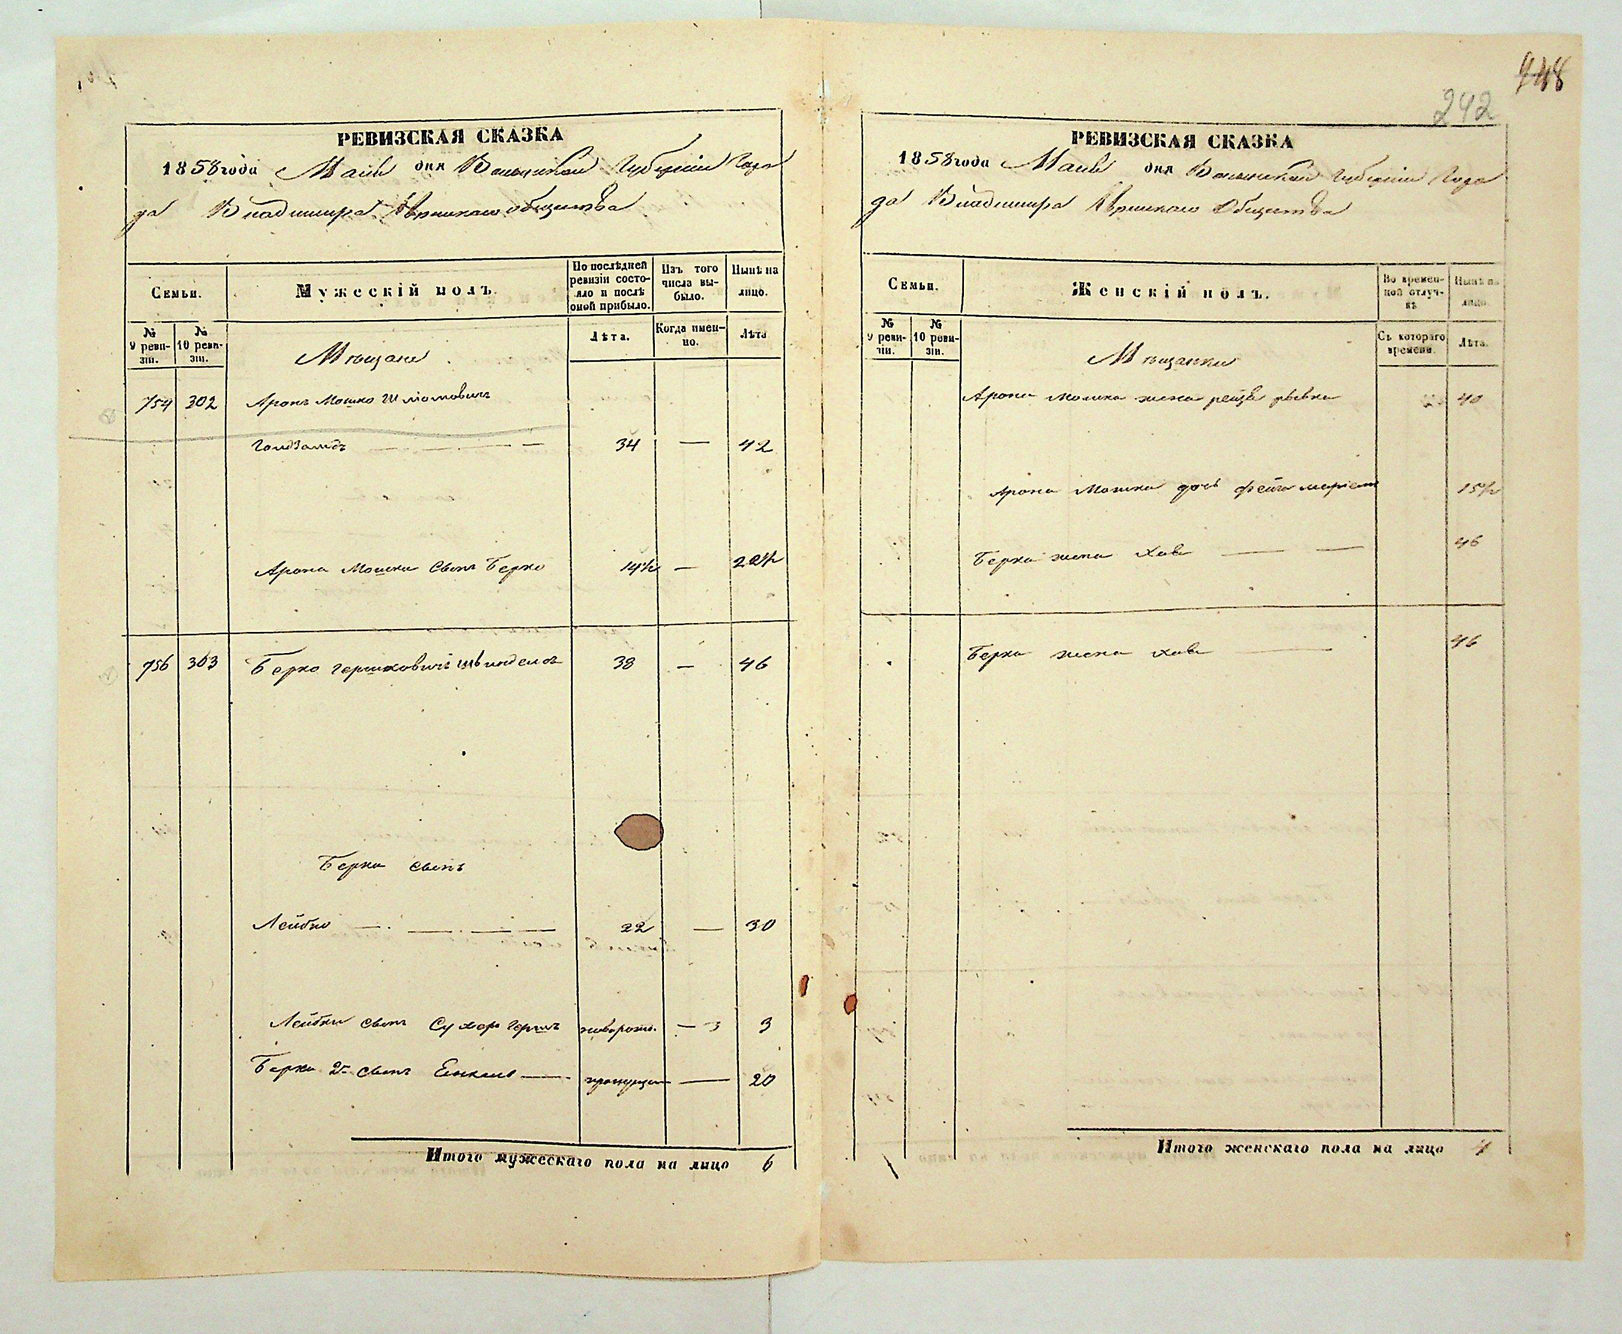 948
242
РЕВИЗСКАЯ СКАЗКА
1858 года Маія дня Волынской Губерніи Горо
да Владимира Еврейскаго Общества
Семьи.
№ 9 ревизіи.
№ 10 ревизіи.
Мужескій полъ.
По послѣдней ревизіи состояло и послѣ оной прибыло.
Изъ того числа выбыло.
Нынѣ на лицо.
Лѣта.
Когда именно.
Лѣта
Мѣщане
754 302 Аронъ Мошко Шліомовичъ
34 — 42
Арона Мошки сынъ Берко 14½ — 22½
756 303 Берко Гершковичъ 38 — 46
Берка сынъ
Лейбко 22 — 30
Лейбки сынъ Сухор Гершъ новорожд. — 3 3
Берка 2й сынъ Енкель пропущен — 20
Итого мужескаго пола на лицо 6
РЕВИЗСКАЯ СКАЗКА
1858 года Маія дня Волынской Губерніи Горо
да Владимира Еврейскаго Общества
Семьи.
№ 9 ревизіи.
№ 10 ревизіи.
Женскій полъ.
Во временной отлучкѣ
Нынѣ на лицо.
Съ котораго времени.
Лѣта.
Мѣщанки
Арона Мошка жена Рывка 40
Арона Мошка дочь Фейга Маріем 15½
Берка жена Хава 46
Берка жена Хава 46
Итого женскаго пола на лицо 4